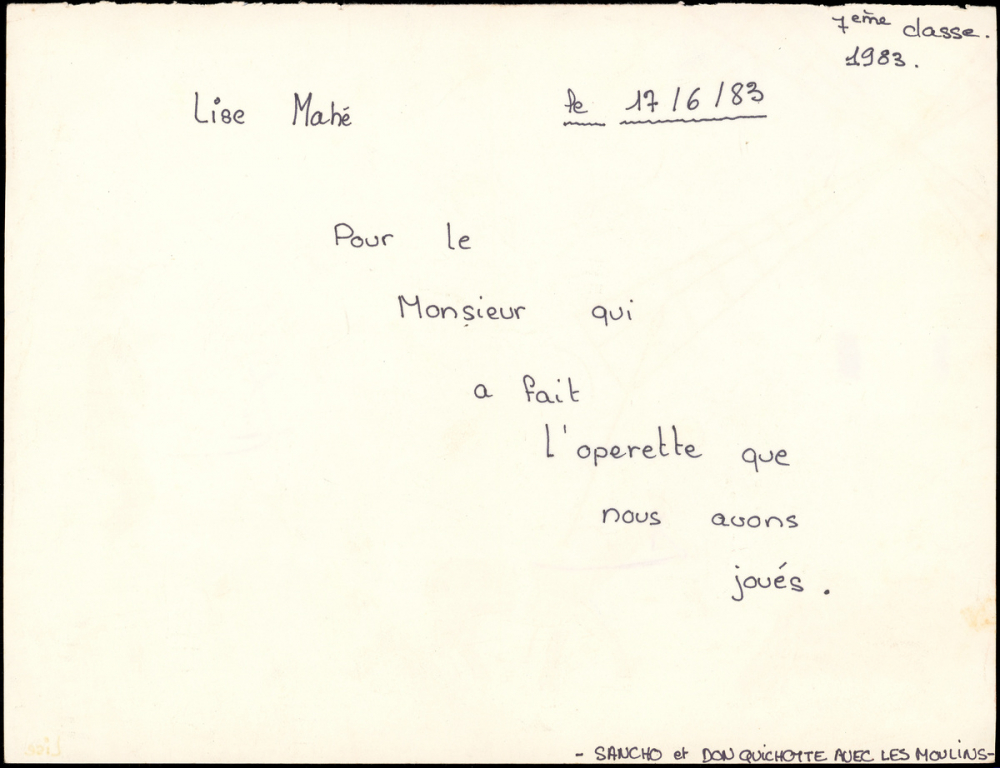 7ème classe.
1983.
Lise Mahé le 17/6/83
Pour le
Monsieur qui
a fait
l'operette que
nous avons
joués.
- SANCHO et DON QUICHOTTE AVEC LES MOULINS-
Lise